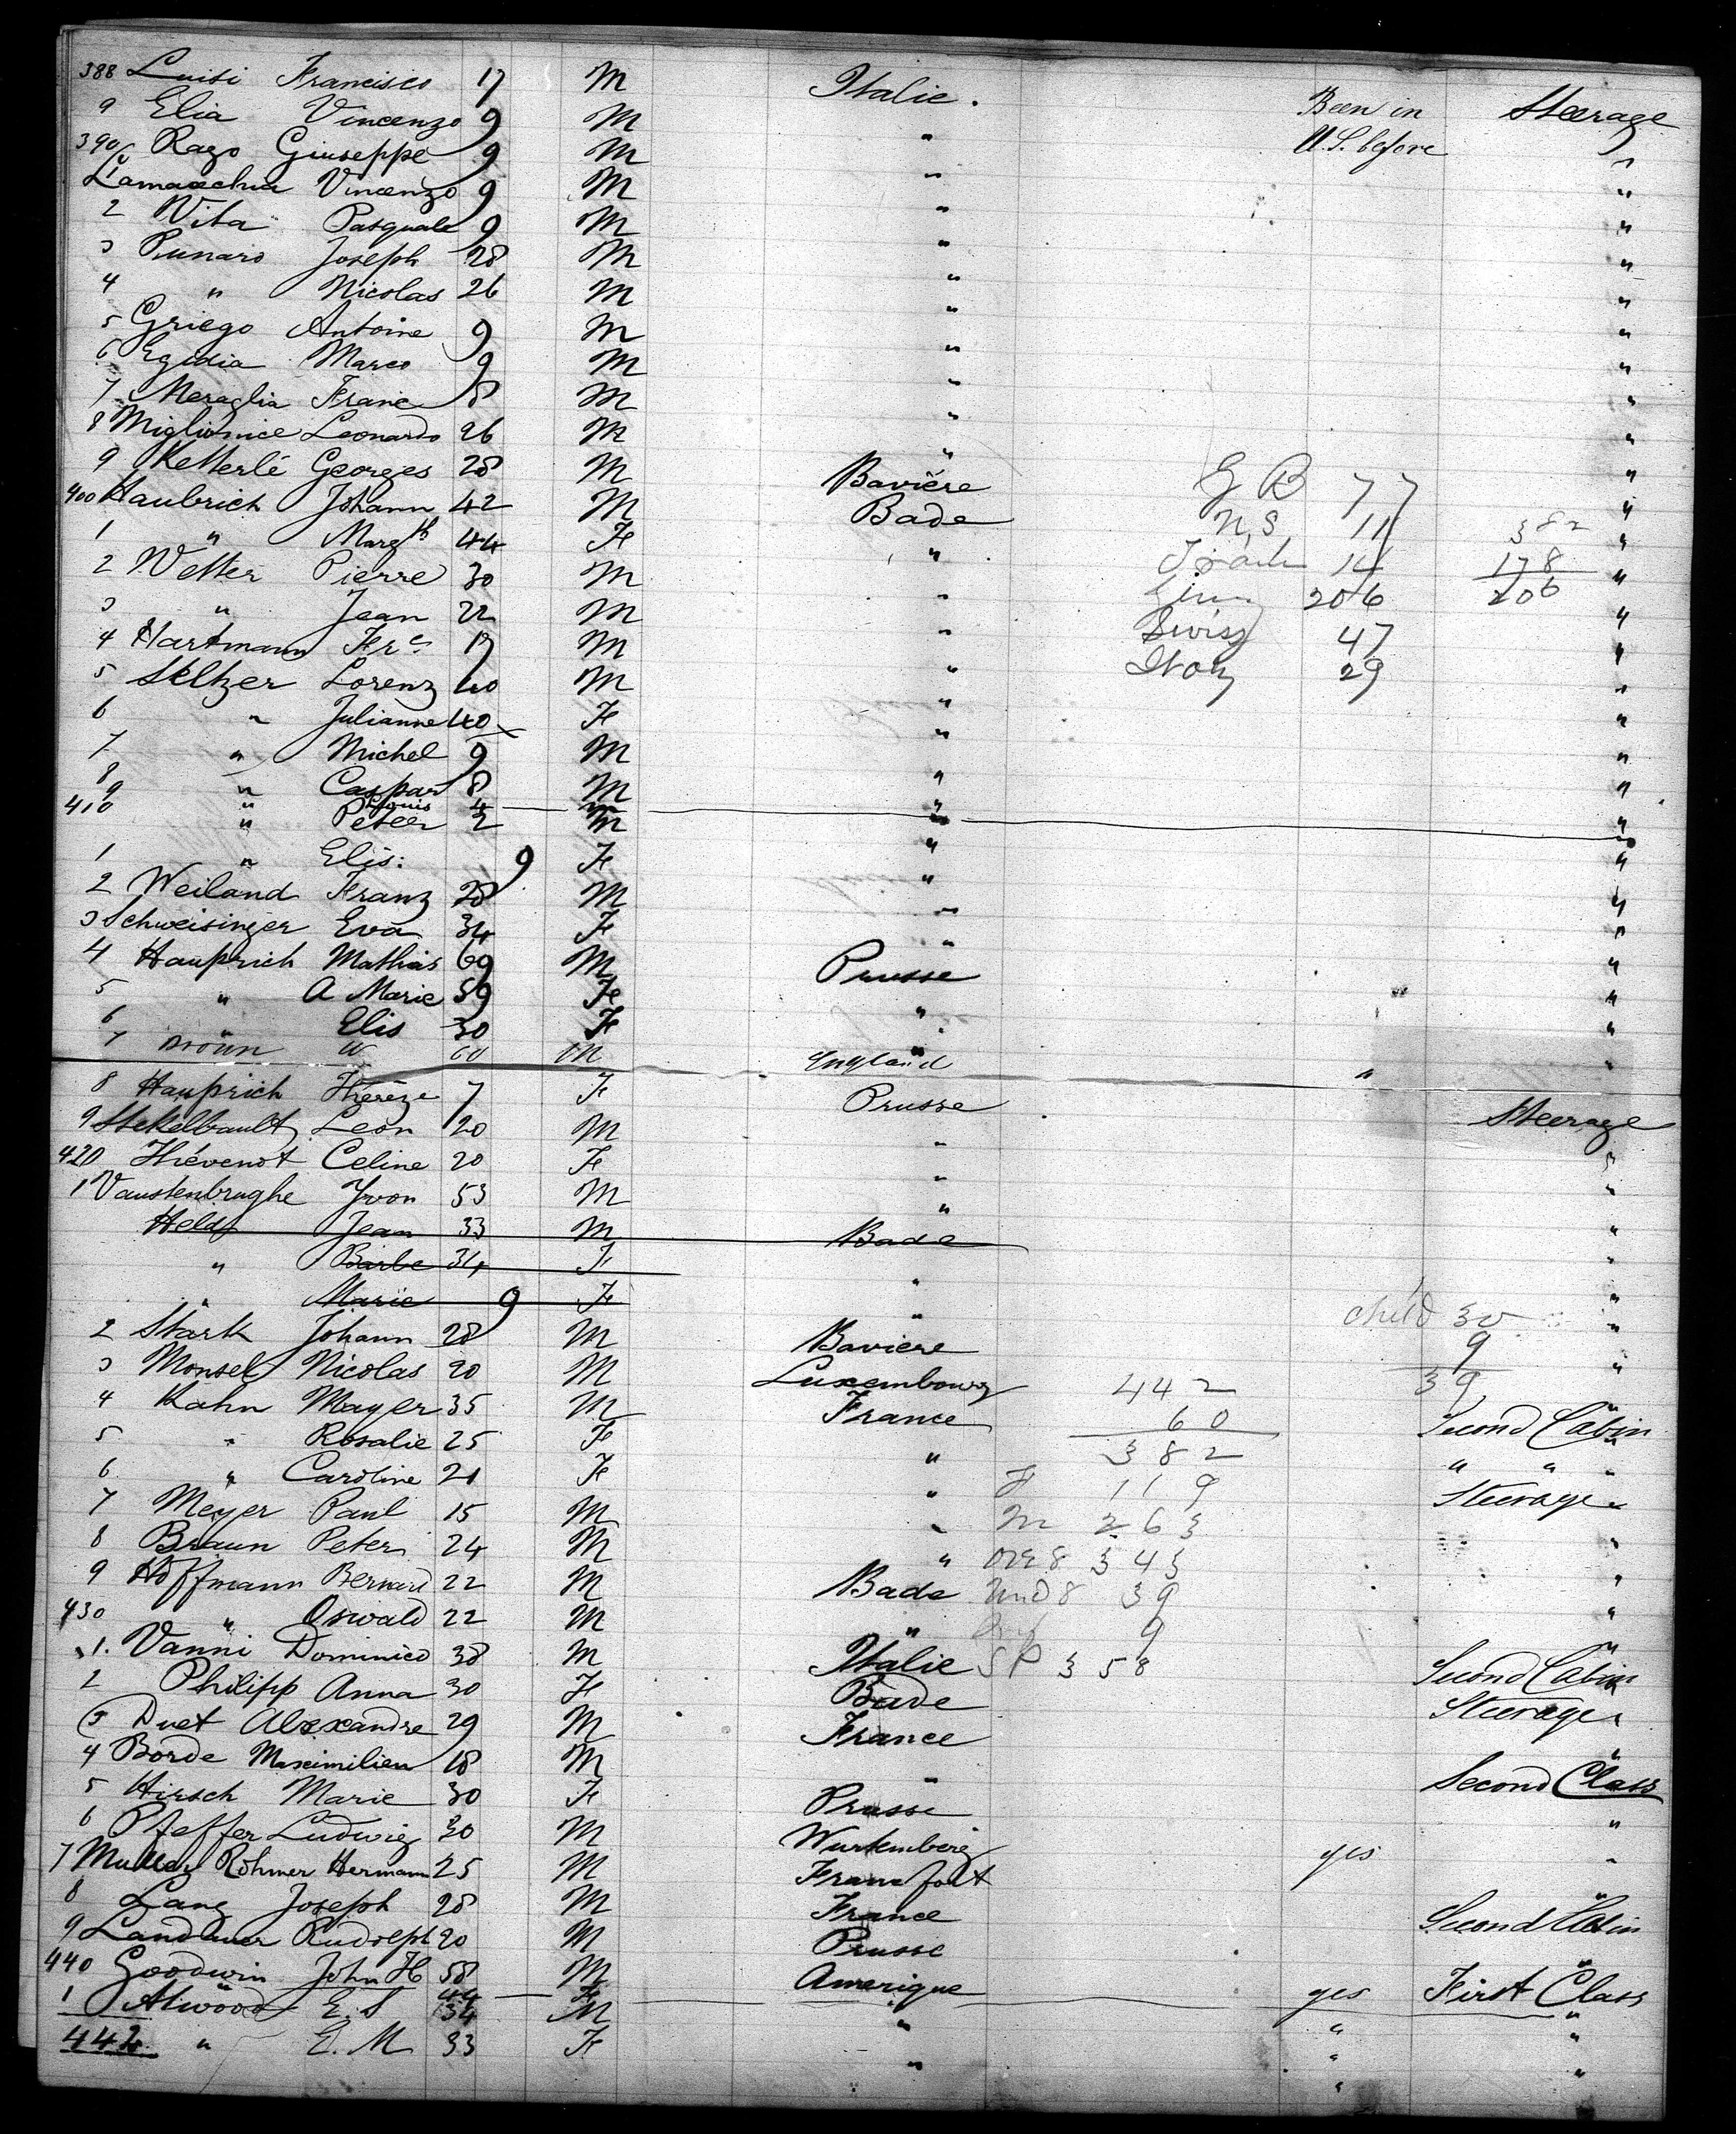 388 Luisi Francisco 17 M Italie. Been in Steerage
9 Elia Vincenzo 9 M " U.S. before "
390 Rago Giuseppe 9 M " "
1 Lamacchia Vincenzo 9 M " "
2 Vita Pasquale 9 M " "
3 Punaro Joseph 28 M " "
4 " Nicolas 26 M " "
5 Griego Antoine 9 M " "
6 Egidia Marco 9 M " "
7 Meraglia Franc 8 M " "
8 Miglionice Leonardo 26 M " "
9 Ketterlé Georges 28 M Bavière G B 77 "
400 Haubrich Johann 42 M Bade N,S 11 382 "
1 " Margth 44 Fe " 14 178 "
2 Wetter Pierre 30 M " 206 206 "
3 " Jean 22 M " Swiss 47 "
4 Hartmann Frc 17 M " Italy 29 "
5 Seltzer Lorenz 40 M " "
6 " Julianne 40 Fe " "
7 " Michel 9 M " "
8 " Caspar 8 M " "
9 " Louis 4 M " "
410 " Peter 2 M " "
1 " Elis: 9 Fe " "
2 Weiland Franz 28 M " "
3 Schweisinger Eva 34 Fe " "
4 Hauprich Mathias 69 M Prusse "
5 " A Marie 59 Fe " "
6 " Elis 30 Fe " "
7 Broun W 60 M England " "
8 Hauprich Thérèze 7 F Prusse Steerage
9 Stekelbault Leon 20 M " "
420 Thévenot Celine 20 Fe " "
1 Vaustenbrughe Yvon 53 M " "
Held Jean 33 M Bade "
" Barbe 34 F "
" Marie 9 Fe " child 30 "
2 Stark Johann 28 M Bavière 9 "
3 Monsel Nicolas 20 M Luxembourg 442 39 "
4 Kahn Mayer 35 M France 60 Second Cabin
5 " Rosalie 25 Fe " 382 " "
6 " Caroline 21 Fe " F 119 Steerage
7 Meyer Paul 15 M " M 263 "
8 Braun Peter 24 M " ove8 343 "
9 Hoffmann Bernard 22 M Bade und8 39 "
430 " Oswald 22 M " 9 "
1. Vanni Dominico 38 M Italie SP 358 Second Cabin
2 Philipp Anna 30 Fe Bade Steerage
3 Duet Alexandre 29 M France "
4 Borde Maximilien 18 M " Second Class
5 Hirsch Marie 30 Fe Prusse "
6 Pfeffer Ludwig 30 M Wurtemberg yes "
7 Muller Röhmer Hermann 25 M Francfort "
8 Lang Joseph 28 M France Second Cabin
9 Landauer Rudolph 20 M Prusse "
440 Goodwin John H 58 M Amerique yes First Class
" 44 Fe
1 Atwood E. S 34 M " " "
442 " E. M 33 Fe " " "